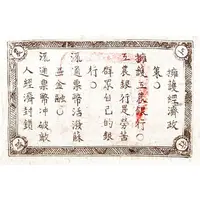 擁護經濟政
擁護工農銀行○
工農銀行是勞苦
群眾自己的銀
行○
流通票幣活潑蘇
區金融○
流通票幣冲破敵
人經濟封鎖